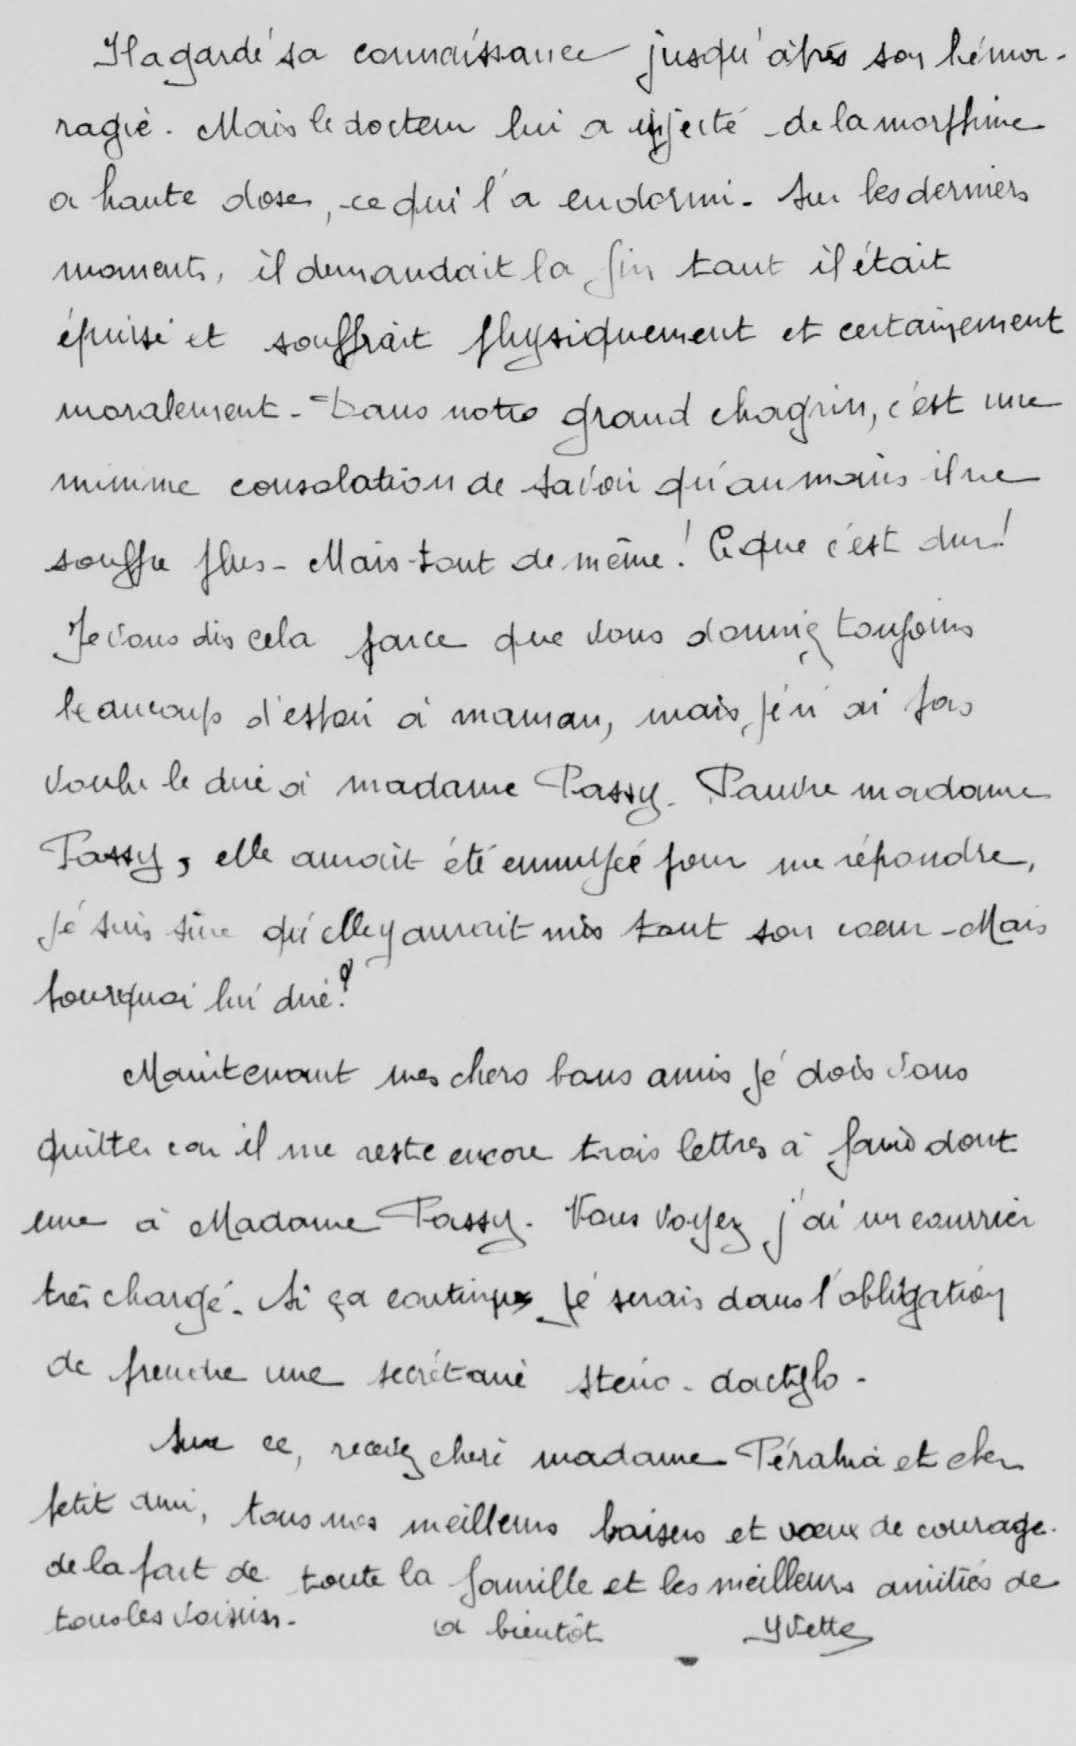 Il a gardé sa connaissance jusqu'après son hémor-
ragie. Mais le docteur lui a injecté de la morphine
a haute dose, ce qui l'a endormi. Sur les derniers
moments, il demandait la fin tant il était
épuisé et souffrait physiquement et certainement
moralement. Dans notre grand chagrin, c'est une
minime consolation de savoir qu'au moins il ne
souffre plus. Mais tout de même! Ce que c'est dur!
Je vous dis cela parce que vous donniez toujours
beaucoup d'espoir à maman, mais, je n'ai pas
voulu le dire à madame Passy. Pauvre madame
Passy, elle aurait été ennuyée pour me répondre,
Je suis sûre qu'elle y aurait mis tout son coeur. Mais
pourquoi lui dire?
Maintenant mes chers bons amis je dois vous
quitter car il me reste encore trois lettres à faire dont
une à Madame Passy. Vous voyez j'ai un courrier
très chargé. Si ça continue je serais dans l'obligation
de prendre une secrétaire sténo-dactylo.
Sur ce, recevez chère madame Pérahia et cher
petit ami, tous mes meilleurs baisers et vœux de courage.
de la part de toute la famille et les meilleurs amitiés de
tous les voisins. a bientôt Yvette